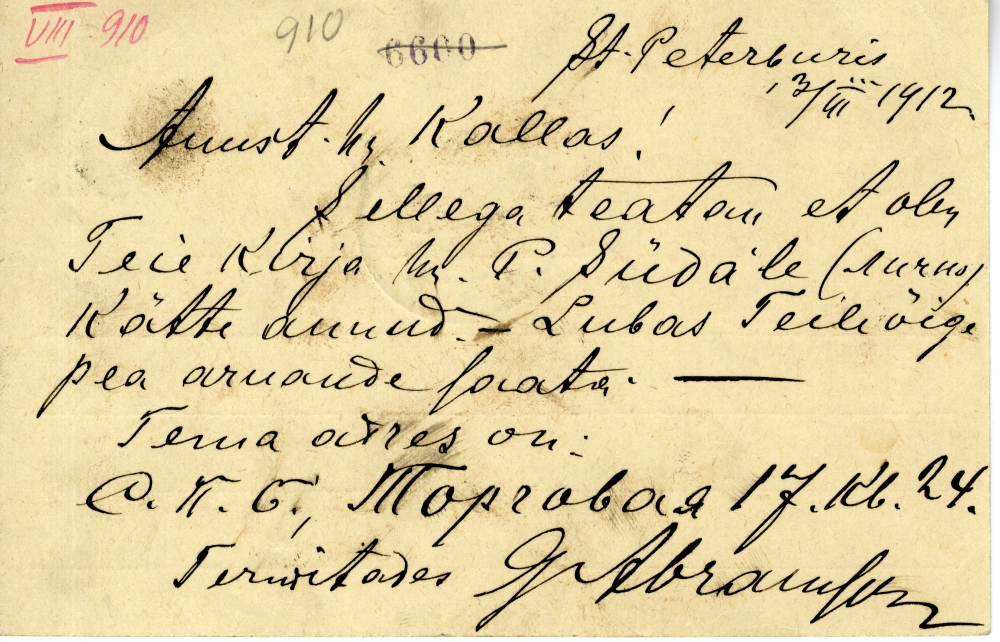 VIII 910
910
6600
St. Peterburis
13/III 1912.
Auust. hr. Kallas!
Sellega teatan et olen
Teie Kirja hr. P. Südále (лично)
Kätte annud. – Lubas Teile õige
pea aruande saata. —
Tema adres on:
С. П. Б., Торговая 17. Кв. 24.
Terwitades G Abramson